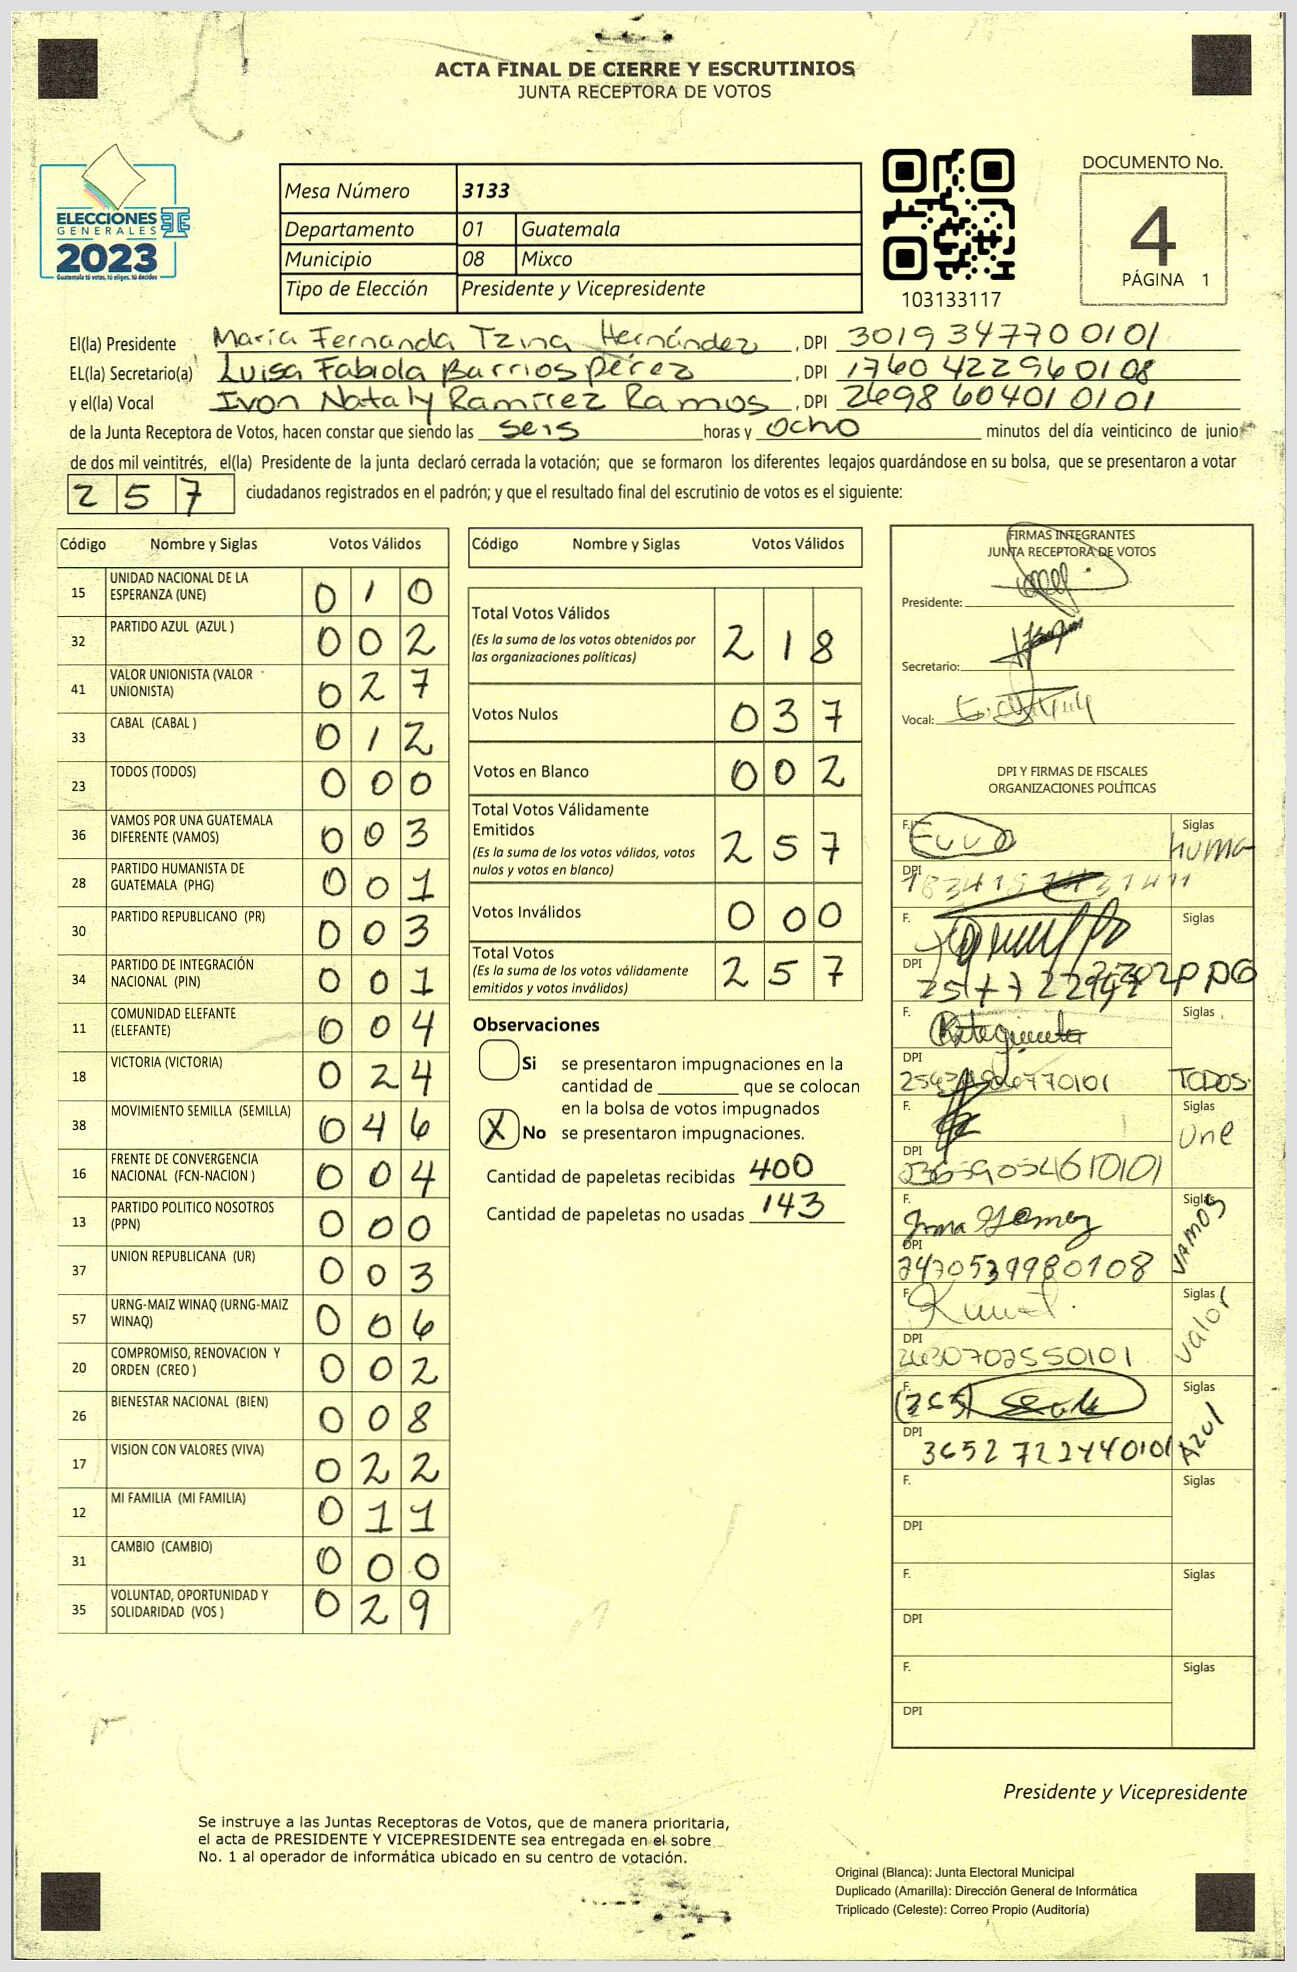 ACTA FINAL DE CIERRE Y ESCRUTINIOS
JUNTA RECEPTORA DE VOTOS
ELECCIONES
GENERALES
2023
Guatemala tú votas, tú eliges, tú decides
Mesa Número 3133
Departamento 01 Guatemala
Municipio 08 Mixco
Tipo de Elección Presidente y Vicepresidente
103133117
DOCUMENTO No.
4
PÁGINA 1
El(la) Presidente María Fernanda Tzina Hernández, DPI 3019 34770 0101
EL(la) Secretario(a) Luisa Fabiola Barrios Pérez, DPI 1760 42296 0108
y el(la) Vocal Ivon Nataly Ramírez Ramos, DPI 2698 60401 0101
de la Junta Receptora de Votos, hacen constar que siendo las seis horas y ocho minutos del día veinticinco de junio
de dos mil veintitrés, el(la) Presidente de la junta declaró cerrada la votación; que se formaron los diferentes legajos guardándose en su bolsa, que se presentaron a votar
257 ciudadanos registrados en el padrón; y que el resultado final del escrutinio de votos es el siguiente:
Código Nombre y Siglas Votos Válidos
15 UNIDAD NACIONAL DE LA ESPERANZA (UNE) 010
32 PARTIDO AZUL (AZUL ) 002
41 VALOR UNIONISTA (VALOR UNIONISTA) 027
33 CABAL (CABAL ) 012
23 TODOS (TODOS) 000
36 VAMOS POR UNA GUATEMALA DIFERENTE (VAMOS) 003
28 PARTIDO HUMANISTA DE GUATEMALA (PHG) 001
30 PARTIDO REPUBLICANO (PR) 003
34 PARTIDO DE INTEGRACIÓN NACIONAL (PIN) 001
11 COMUNIDAD ELEFANTE (ELEFANTE) 004
18 VICTORIA (VICTORIA) 024
38 MOVIMIENTO SEMILLA (SEMILLA) 046
16 FRENTE DE CONVERGENCIA NACIONAL (FCN-NACION ) 004
13 PARTIDO POLITICO NOSOTROS (PPN) 000
37 UNION REPUBLICANA (UR) 003
57 URNG-MAIZ WINAQ (URNG-MAIZ WINAQ) 006
20 COMPROMISO, RENOVACION Y ORDEN (CREO ) 002
26 BIENESTAR NACIONAL (BIEN) 008
17 VISION CON VALORES (VIVA) 022
12 MI FAMILIA (MI FAMILIA) 011
31 CAMBIO (CAMBIO) 000
35 VOLUNTAD, OPORTUNIDAD Y SOLIDARIDAD (VOS ) 029
Código Nombre y Siglas Votos Válidos
Total Votos Válidos 218
(Es la suma de los votos obtenidos por
las organizaciones políticas)
Votos Nulos 037
Votos en Blanco 002
Total Votos Válidamente
Emitidos 257
(Es la suma de los votos válidos, votos
nulos y votos en blanco)
Votos Inválidos 000
Total Votos 257
(Es la suma de los votos válidamente
emitidos y votos inválidos)
Observaciones
Si se presentaron impugnaciones en la
cantidad de ________ que se colocan
en la bolsa de votos impugnados
X No se presentaron impugnaciones.
Cantidad de papeletas recibidas 400
Cantidad de papeletas no usadas 143
FIRMAS INTEGRANTES
JUNTA RECEPTORA DE VOTOS
Presidente:
Secretario:
Vocal:
DPI Y FIRMAS DE FISCALES
ORGANIZACIONES POLÍTICAS
F. Siglas
Huma
DPI
F. Siglas
DPI
F. Siglas
DPI TODOS
F. Siglas
Une
DPI
F. Irma Gómez Siglas VAMOS
DPI 2470539980108
F. Siglas Valor
DPI 2630702550101
F. Siglas Azul
DPI 3652 722440101
F. Siglas
DPI
F. Siglas
DPI
F. Siglas
DPI
Presidente y Vicepresidente
Se instruye a las Juntas Receptoras de Votos, que de manera prioritaria,
el acta de PRESIDENTE Y VICEPRESIDENTE sea entregada en el sobre
No. 1 al operador de informática ubicado en su centro de votación.
Original (Blanca): Junta Electoral Municipal
Duplicado (Amarilla): Dirección General de Informática
Triplicado (Celeste): Correo Propio (Auditoría)